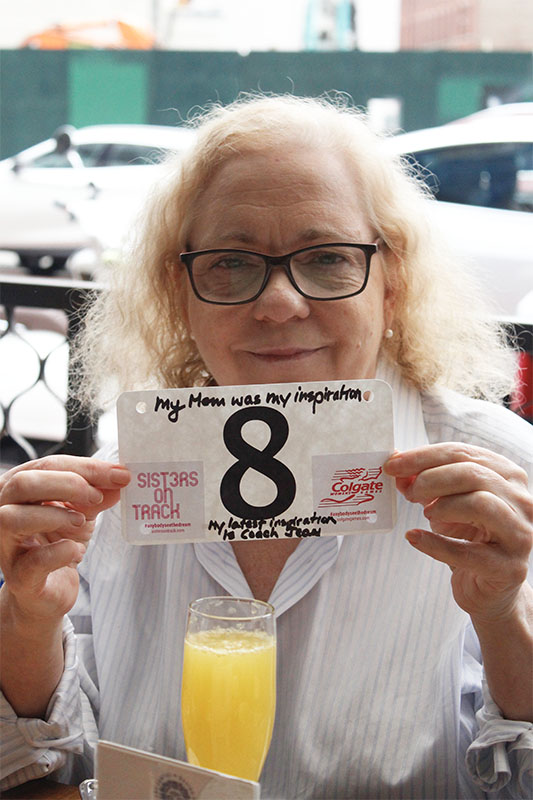 my Mom was my inspiration
8
SIST3RS
ON
TRACK
Colgate
WOMEN'S GAMES
my latest inspiration
is Coach Jean